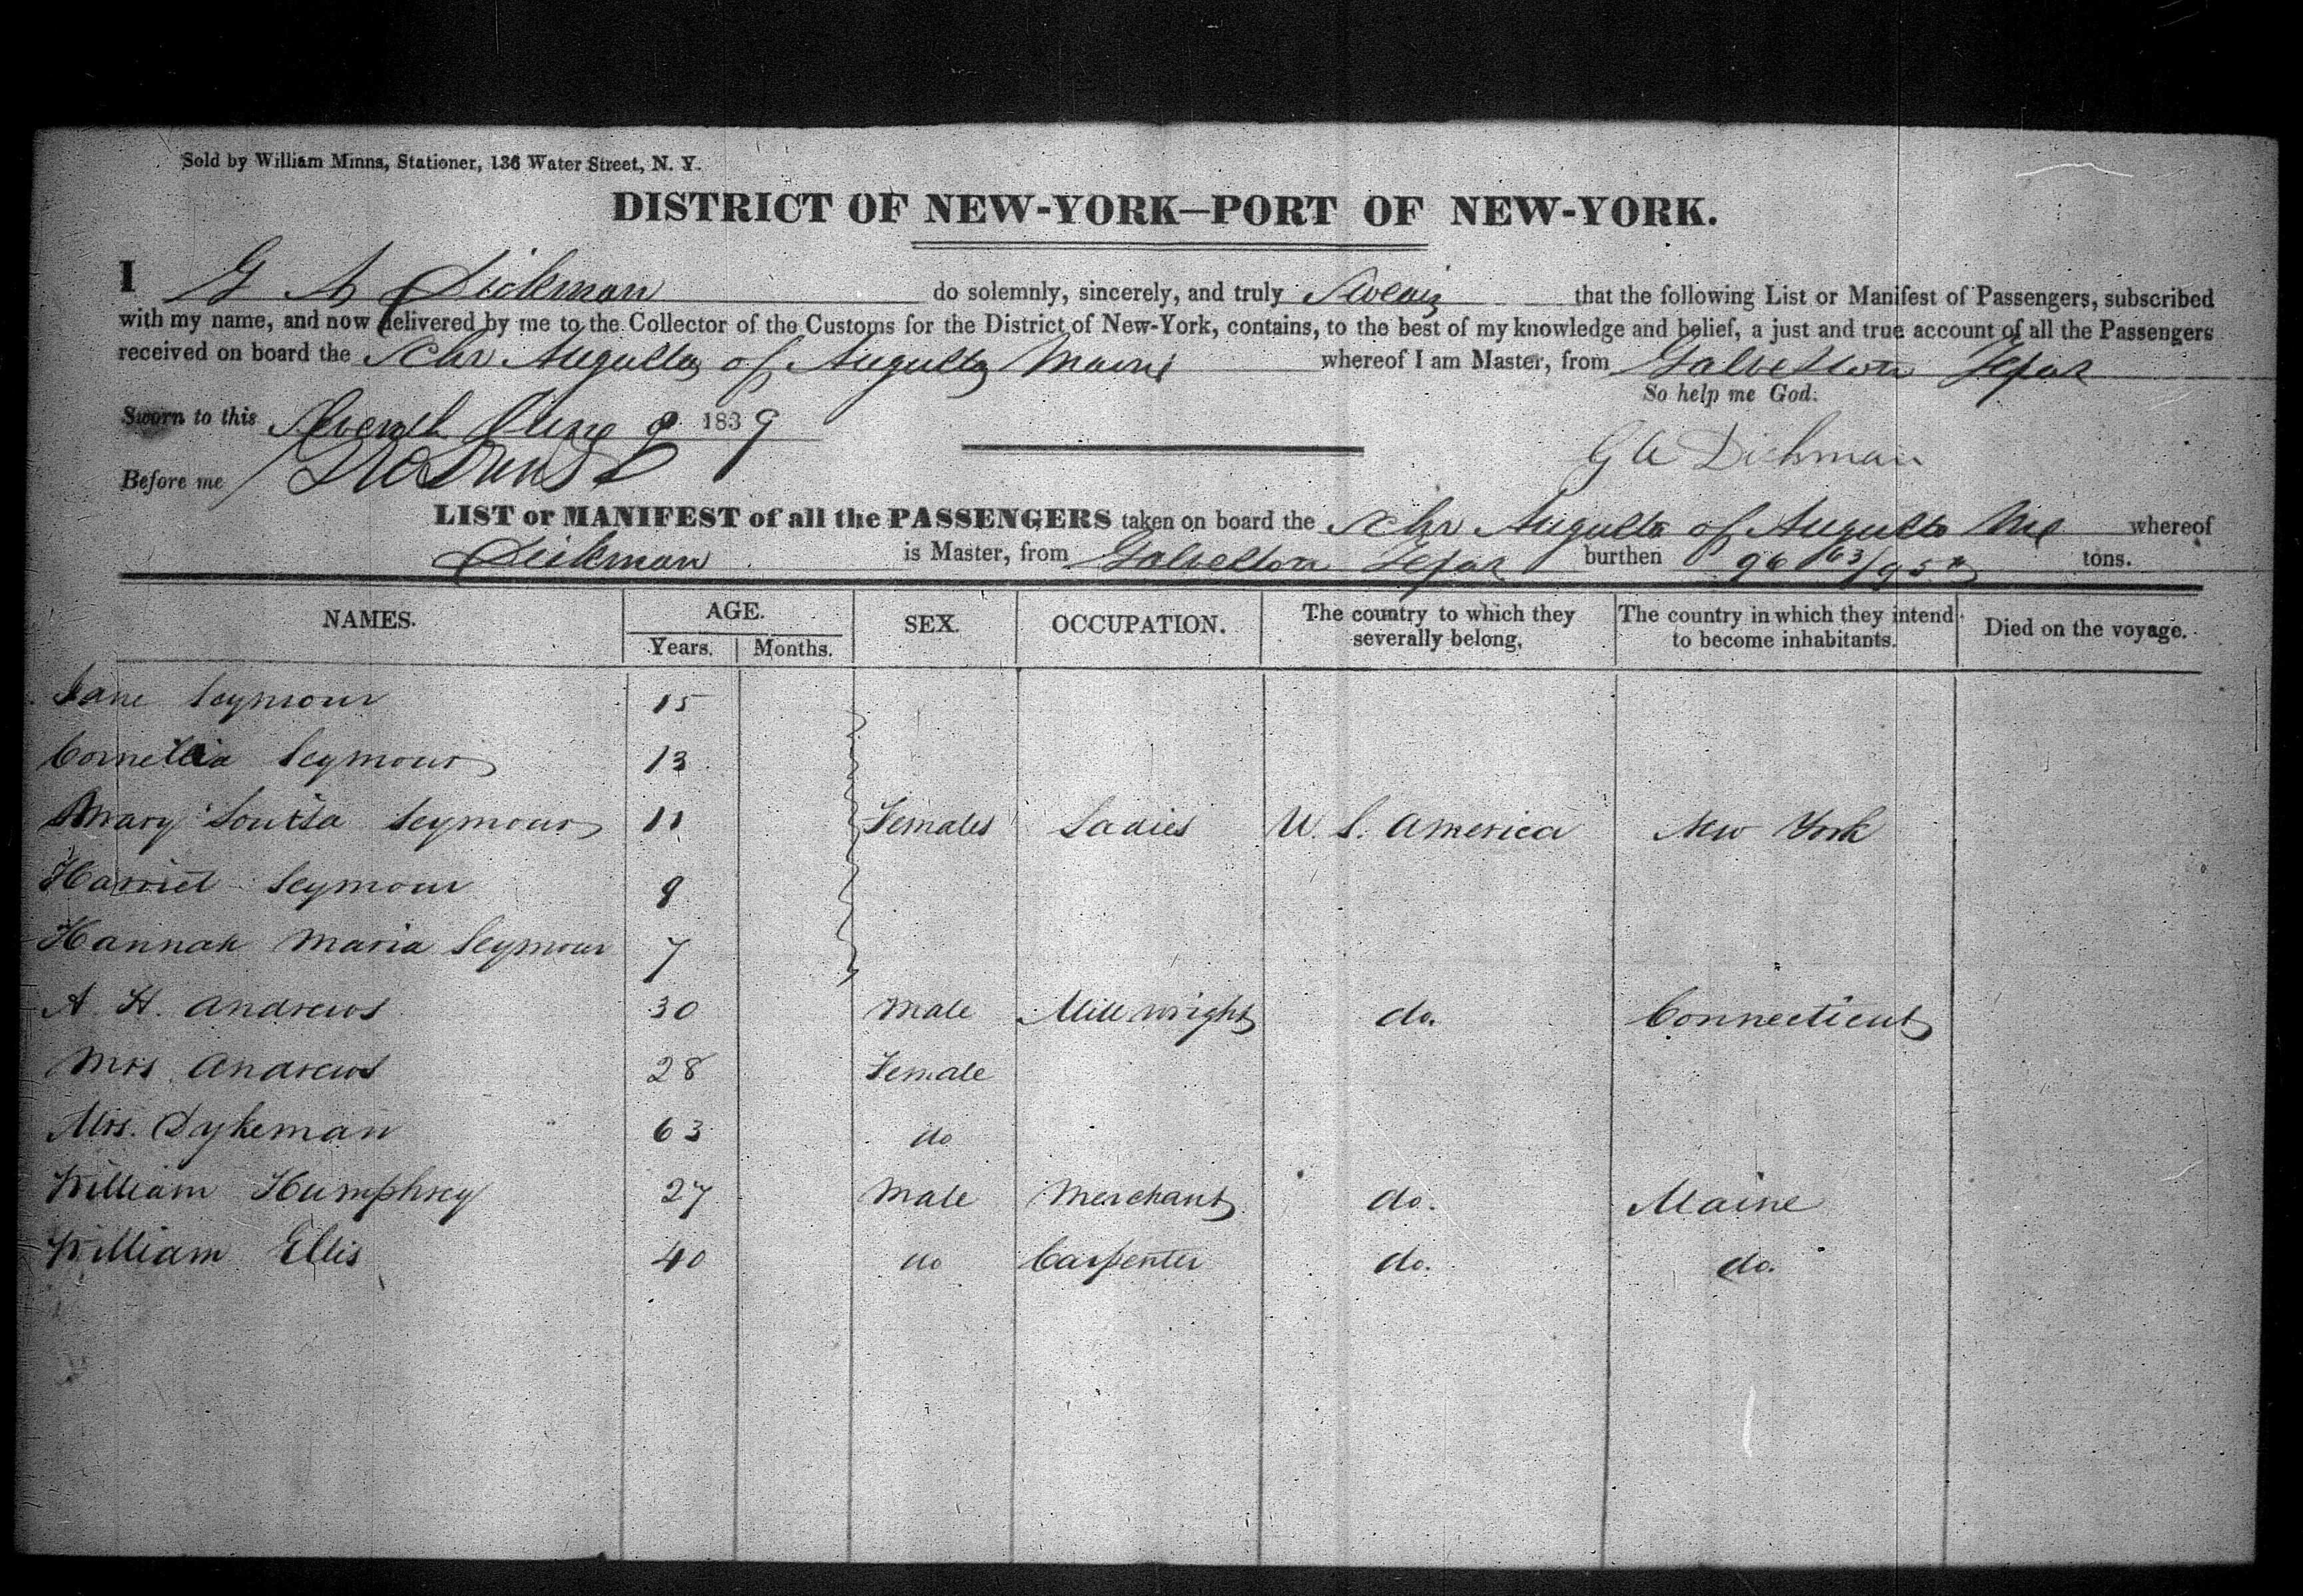 Sold by William Minns, Stationer, 136 Water Street, N. Y.
DISTRICT OF NEW-YORK—PORT OF NEW-YORK.
I G A Dickman do solemnly, sincerely, and truly Swear that the following List or Manifest of Passengers, subscribed
with my name, and now delivered by me to the Collector of the Customs for the District of New-York, contains, to the best of my knowledge and belief, a just and true account of all the Passengers
received on board the Schr Augusta of Augusta Maine whereof I am Master, from Galveston Texas
So help me God.
Sworn to this Seventh June 1839
G A Dickman
Before me
LIST or MANIFEST of all the PASSENGERS taken on board the Schr Augusta of Augusta Me whereof
Dickman is Master, from Galveston Texas burthen 96 63/95 tons.
NAMES. AGE. SEX. OCCUPATION. The country to which they severally belong, The country in which they intend to become inhabitants. Died on the voyage.
Years. Months.
Jane Seymour 15
Cornelia Seymour 13
Mary Louisa Seymour 11 Females Ladies U. S. America New York
Harriet Seymour 9
Hannah Maria Seymour 7
A. H. Andrews 30 Male Mill wright do. Connecticut
Mrs Andrews 28 Female
Mrs. Dykeman 63 do
William Humphrey 27 Male Merchant do. Maine
William Ellis 40 do Carpenter do. do.